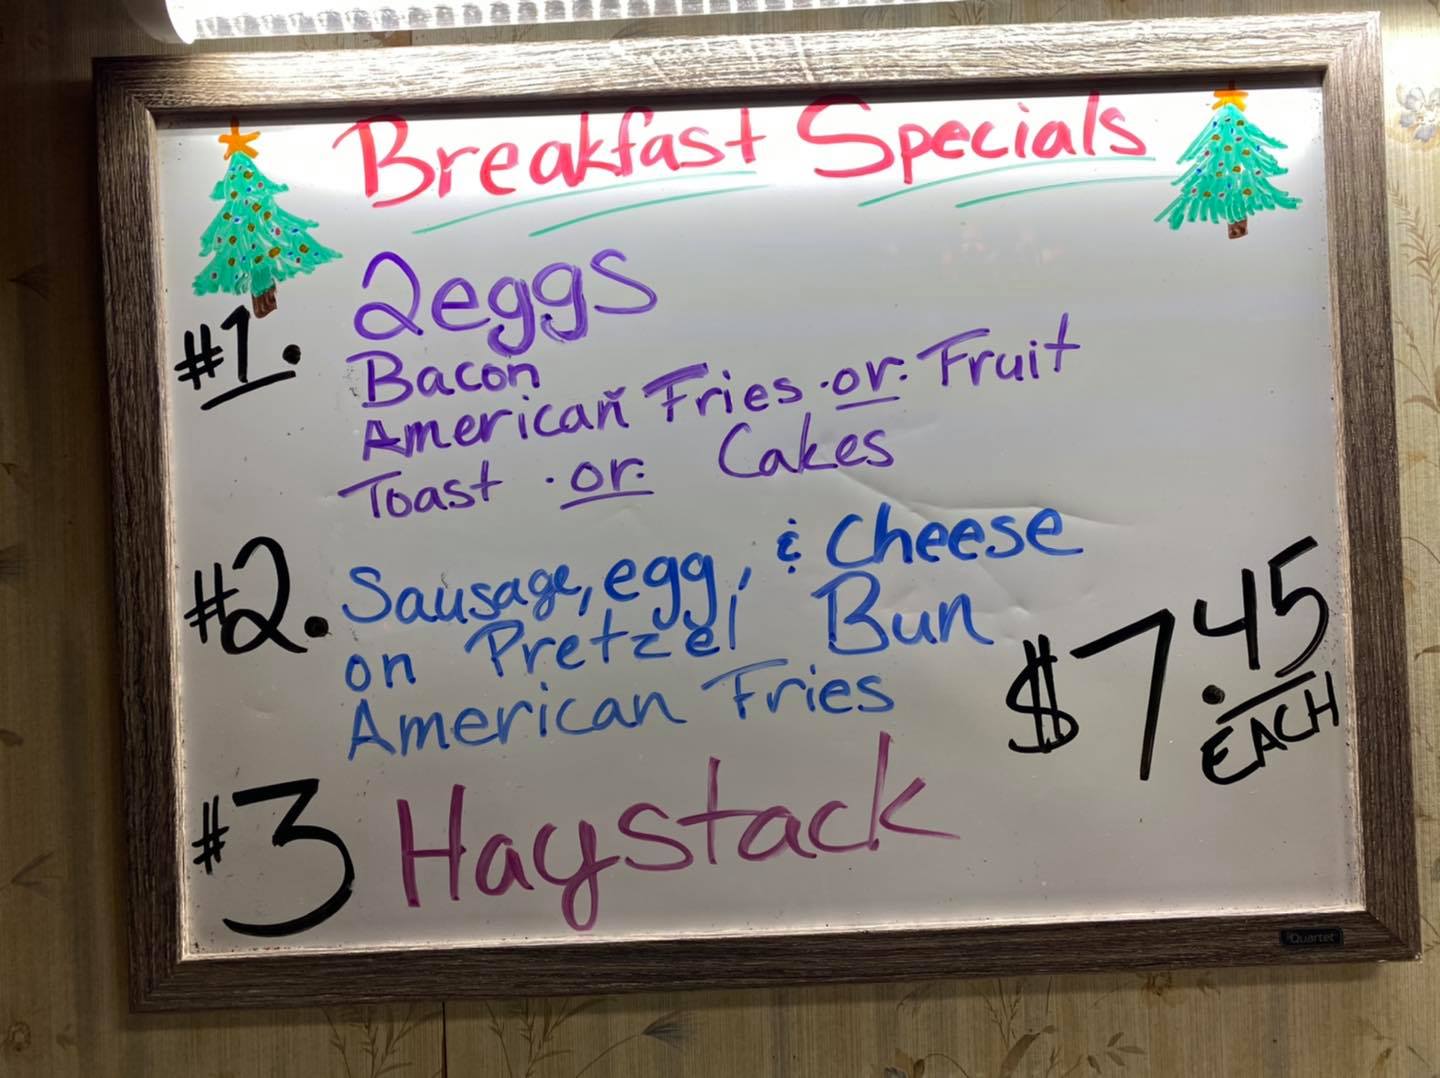 Breakfast Specials
#1. 2eggs
Bacon
American Fries · or · Fruit
Toast · or · Cakes
#2. Sausage, egg, & Cheese
on Pretzel Bun
American Fries
$7.45
EACH
#3 Haystack
Quartet